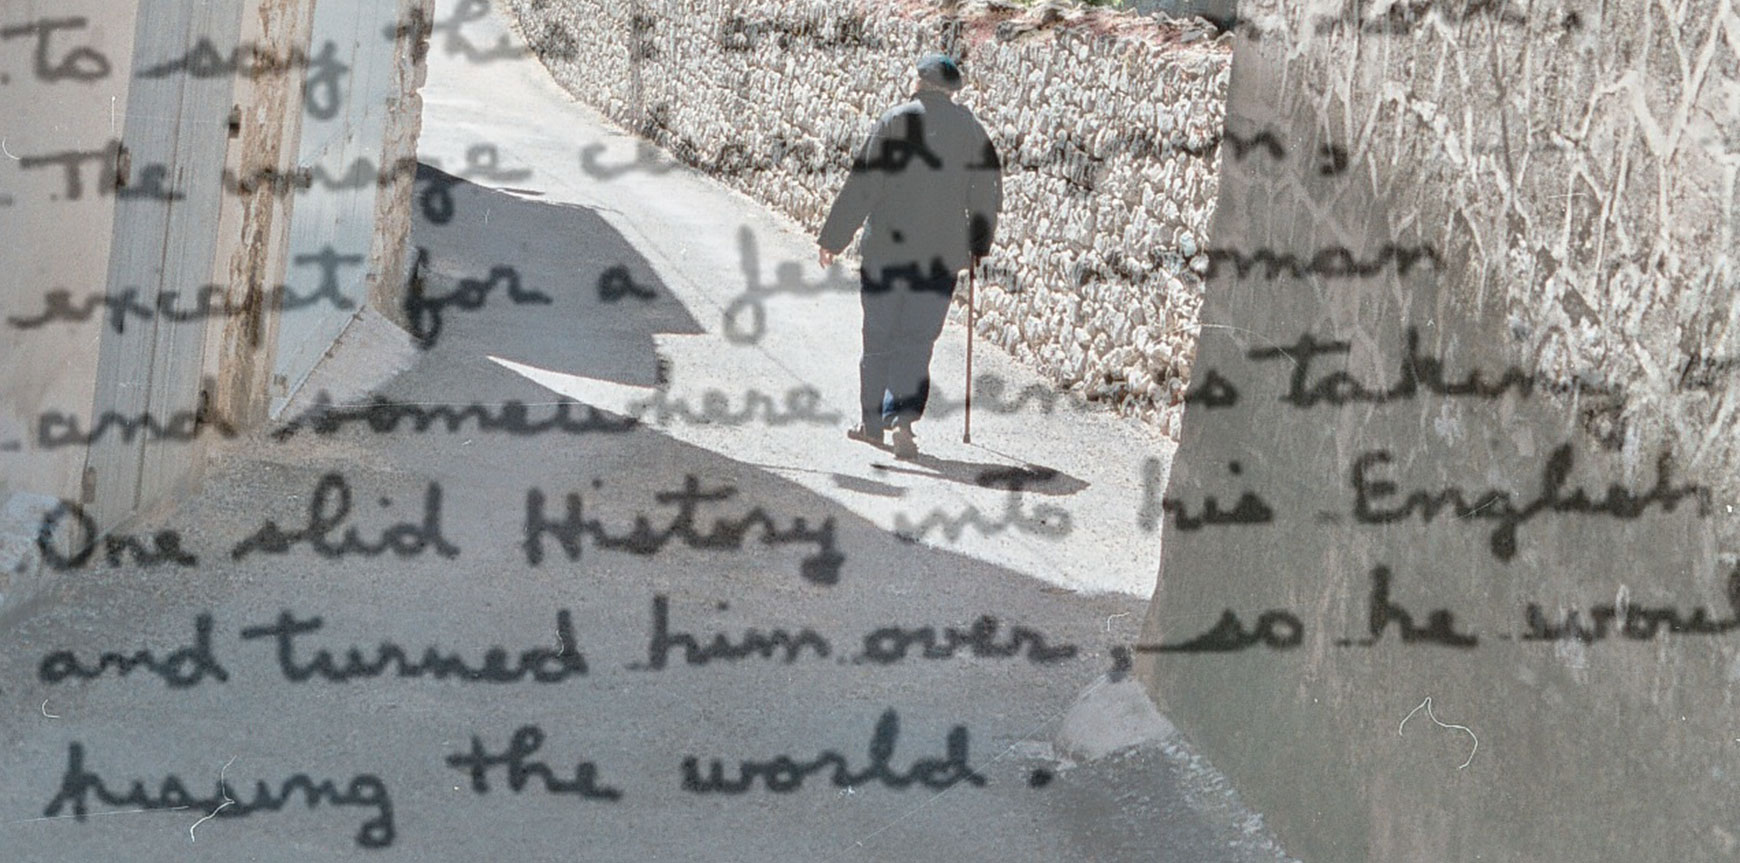 to say the
The image
except for a Jewish woman
and somewhere seems taken
One slid History into his English
and turned him over, so he woul
kissing the world.